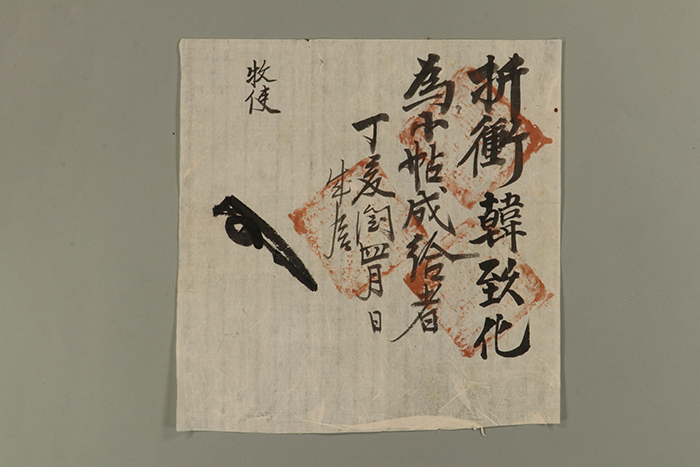 折衝韓致化
為小帖成給者
丁亥閏四月日
牧使